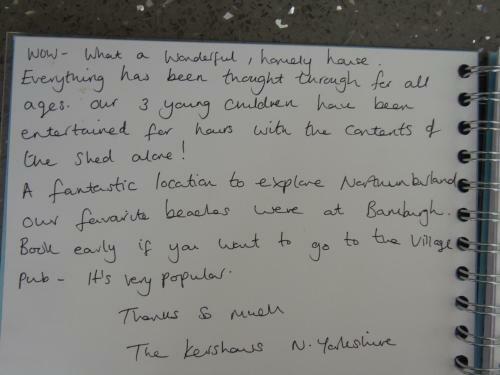 WOW - What a wonderful, homely house.
Everything has been thought through for all
ages. Our 3 young children have been
entertained for hours with the contents of
the shed alone!
A fantastic location to explore Northumberland
our favorite beaches were at Bamburgh.
Book early if you want to go to the village
pub - It's very popular.
Thanks so much
The Kershaws N. Yorkshire